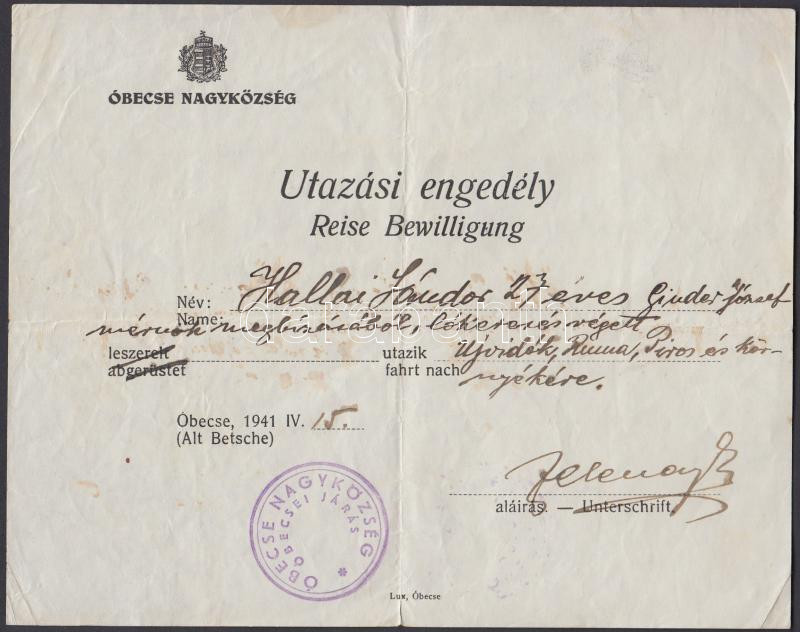 ÓBECSE NAGYKÖZSÉG
Utazási engedély
Reise Bewilligung
Név: Hallai Sándor 27 éves Ginder József
Name:
mérnök megbízásából, lókeresés végett
leszerelt utazik Ujvidék, Ruma, Piros és kör-
abgerüstet fahrt nach nyékére.
Óbecse, 1941 IV. 15.
(Alt Betsche)
aláirás. — Unterschrift.
ÓBECSE NAGYKÖZSÉG *
ÓBECSEI JÁRÁS
Lux, Óbecse
darabanth